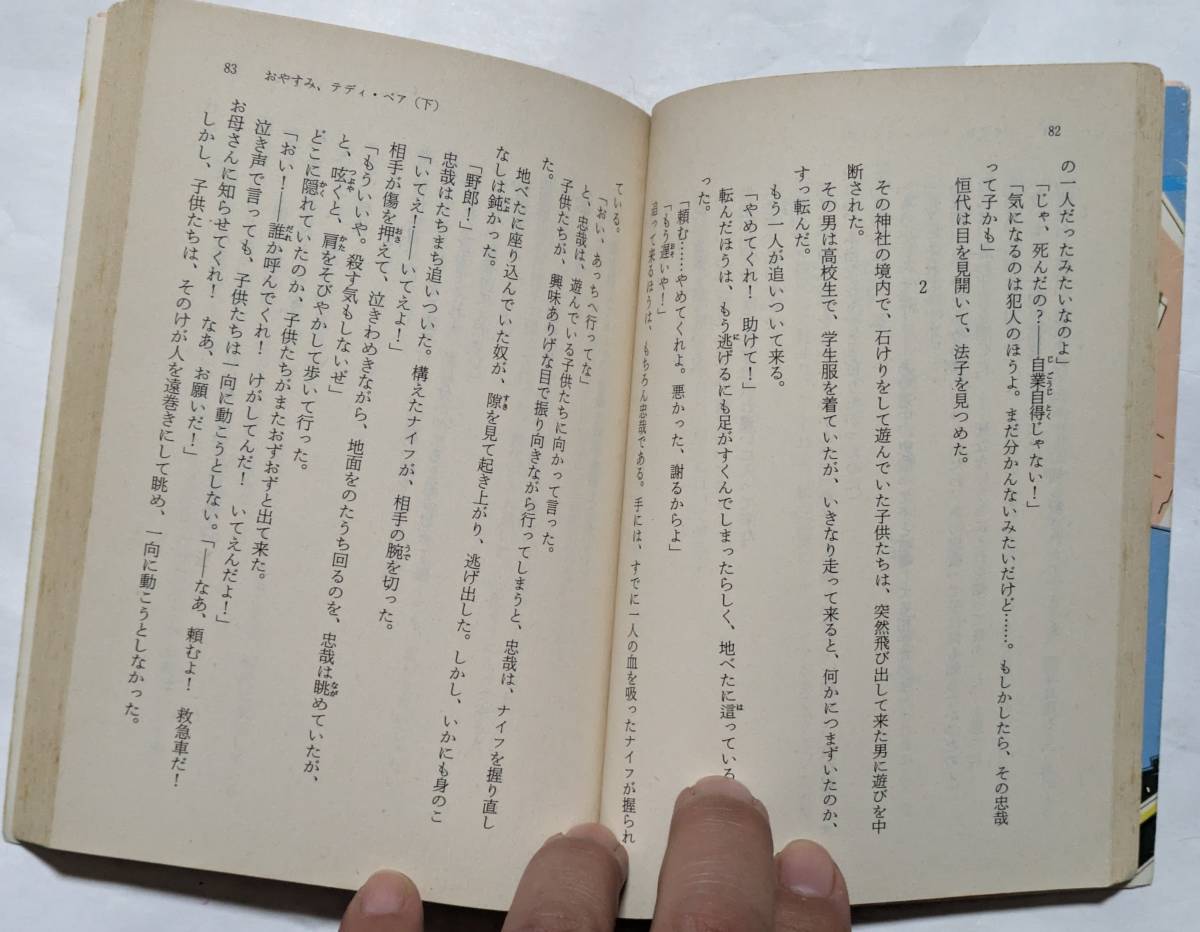 82
の一人だったみたいなのよ」
「じゃ、死んだの？――自業自得じゃない！」
「気になるのは犯人のほうよ。まだ分かんないみたいだけど……。もしかしたら、その忠哉
って子かも」
恒代は目を見開いて、法子を見つめた。
2
その神社の境内で、石けりをして遊んでいた子供たちは、突然飛び出して来た男に遊びを中
断された。
その男は高校生で、学生服を着ていたが、いきなり走って来ると、何かにつまずいたのか、
すっ転んだ。
もう一人が追いついて来る。
「やめてくれ！　助けて！」
転んだほうは、もう逃げるにも足がすくんでしまったらしく、地べたに這っている
った。
「頼む……やめてくれよ。悪かった、謝るからよ」
「もう遅いや！」
追って来るほうは、もちろん忠哉である。手には、すでに一人の血を吸ったナイフが握られ
83　おやすみ、テディ・ベア（下）
ている。
「おい、あっちへ行ってな」
と、忠哉は、遊んでいる子供たちに向かって言った。
子供たちが、興味ありげな目で振り向きながら行ってしまうと、忠哉は、ナイフを握り直し
た。
地べたに座り込んでいた奴が、隙を見て起き上がり、逃げ出した。しかし、いかにも身のこ
なしは鈍かった。
「野郎！」
忠哉はたちまち追いついた。構えたナイフが、相手の腕を切った。
「いてえ！――いてえよ！」
相手が傷を押えて、泣きわめきながら、地面をのたうち回るのを、忠哉は眺めていたが、
「もういいや。殺す気もしないぜ」
と、呟くと、肩をそびやかして歩いて行った。
どこに隠れていたのか、子供たちがまたおずおずと出て来た。
「おい！――誰か呼んでくれ！　けがしてんだ！　いてえんだよ！」
泣き声で言っても、子供たちは一向に動こうとしない。「――なあ、頼むよ！　救急車だ！
お母さんに知らせてくれ！　なあ、お願いだ！」
しかし、子供たちは、そのけが人を遠巻きにして眺め、一向に動こうとしなかった。